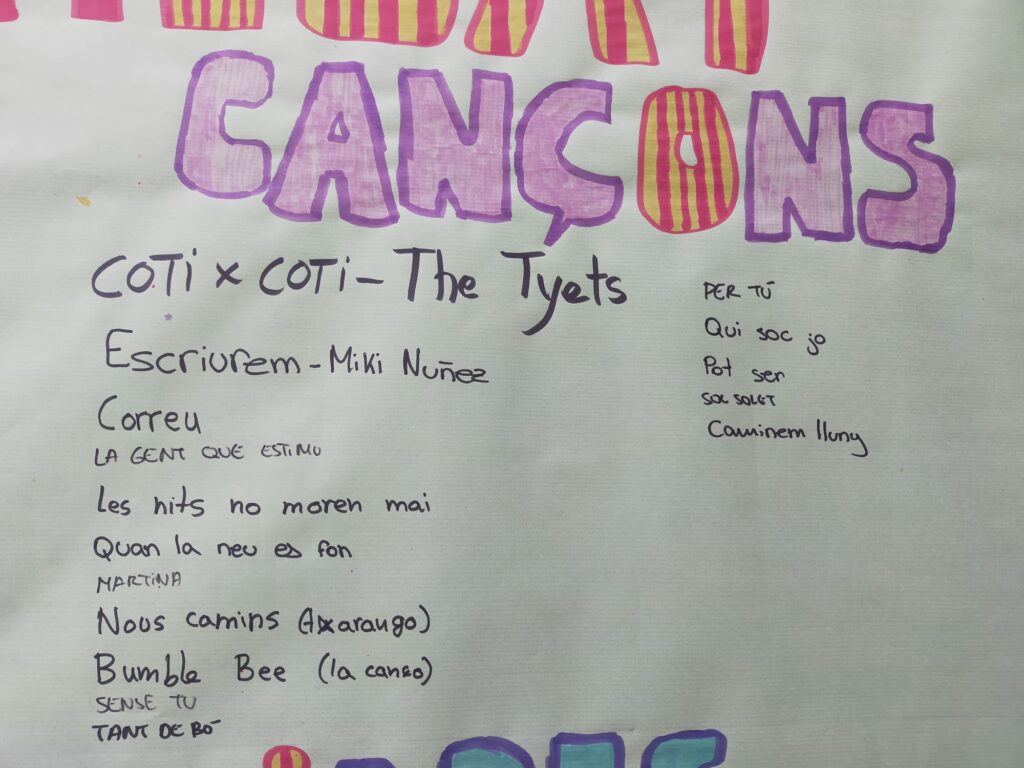 CANÇONS
COTi x COTi - The Tyets
Escriurem - Miki Nuñez
Correu
LA GENT QUE ESTIMO
Les nits no moren mai
Quan la neu es fon
MARTINA
Nous camins (Txarango)
Bumble Bee (la canso)
SENSE TU
TANT DE BÓ
PER TÚ
Qui soc jo
Pot ser
SOL SOLET
Caminem lluny